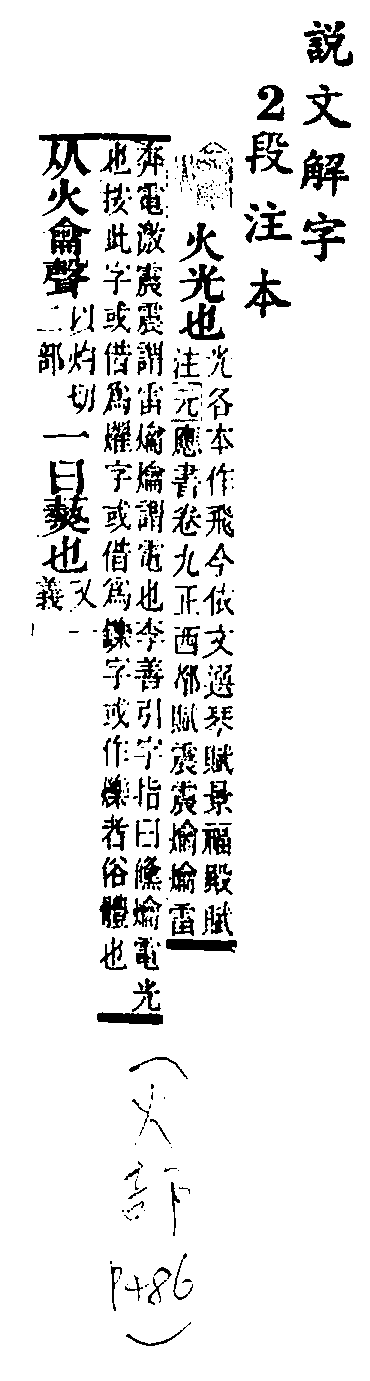 説文解字
2段注本
火光也
光各本作飛今依文選琴賦景福殿賦
注元應書卷九正西都賦震震爚爚雷
奔電激震震謂雷爚爚謂電也李善引字指曰儵爚電光
也按此字或借爲燿字或借爲鑠字或作爍者俗體也
从火龠聲
以灼切
二部
一曰爇也
又一
義
(火
部
P486)